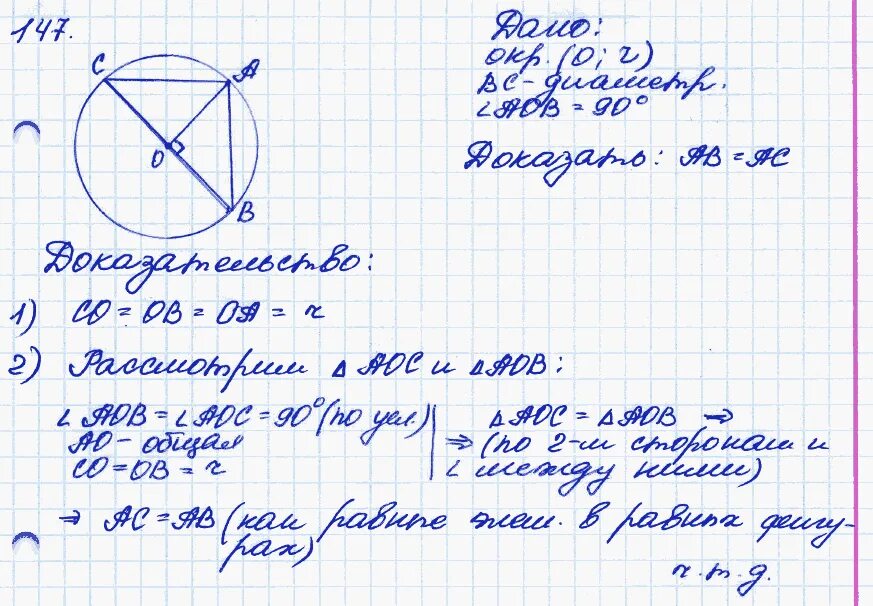 147.
Дано:
окр. (O; r)
BC - диаметр.
∠AOB = 90°
Доказать: AB = AC
C
A
O
B
Доказательство:
1) CO = OB = OA = r
2) Рассмотрим △AOC и △AOB:
∠AOB = ∠AOC = 90° (по усл.)
AO - общая
CO = OB = r
△AOC = △AOB ⇒
⇒ (по 2-м сторонам и
∠ между ними)
⇒ AC = AB (как равные элем. в равных фигу-
рах)
ч.т.д.